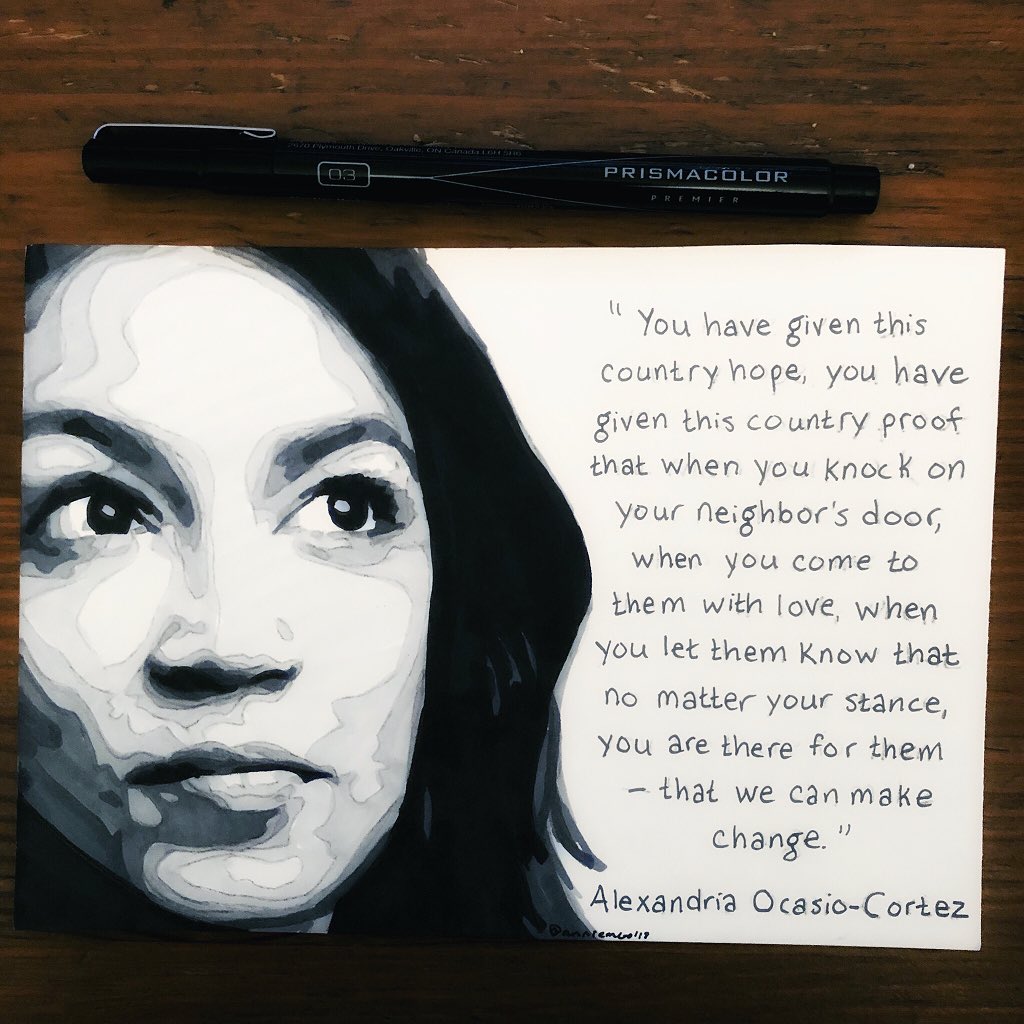 2920 Plymouth Drive, Oakville, ON Canada L6H 5R6
03
PRISMACOLOR
PREMIER
" You have given this
country hope, you have
given this country proof
that when you knock on
your neighbor's door,
when you come to
them with love, when
you let them know that
no matter your stance,
you are there for them
- that we can make
change. "
Alexandria Ocasio-Cortez